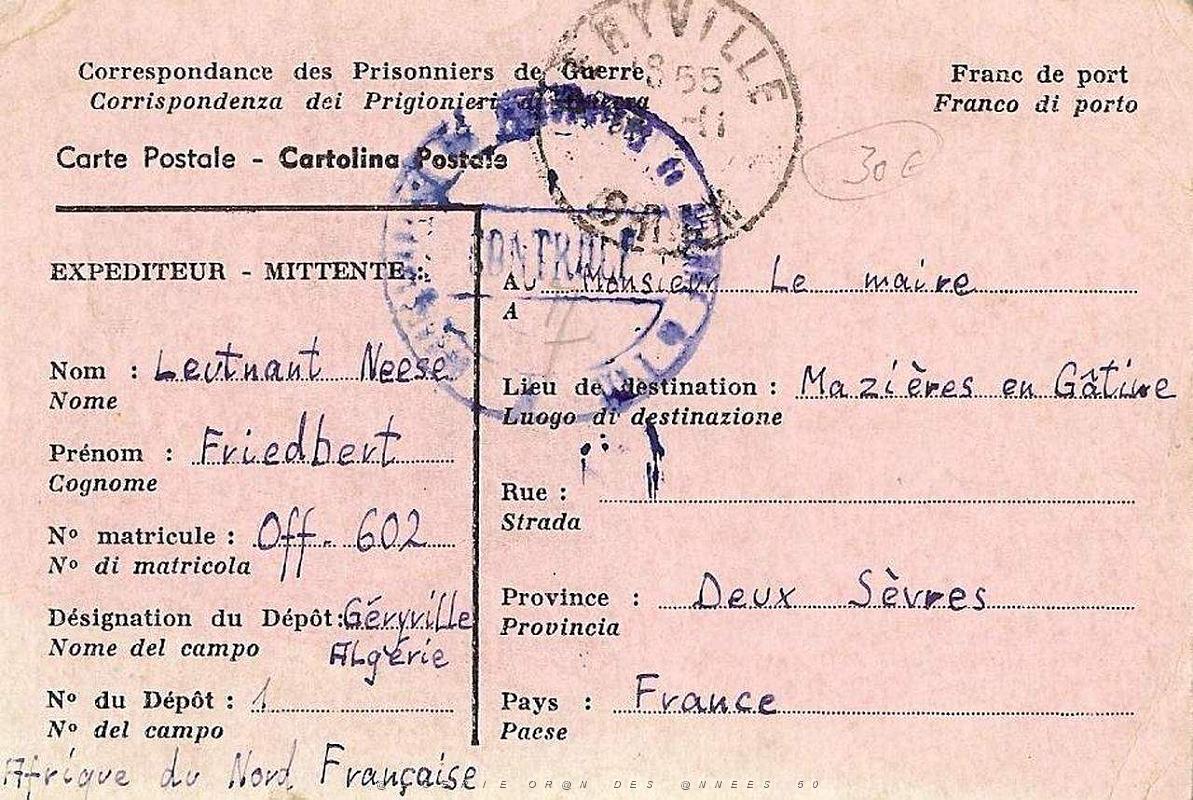 Correspondance des Prisonniers de Guerre
Corrispondenza dei Prigionieri di Guerra
Carte Postale - Cartolina Postale
Franc de port
Franco di porto
GERYVILLE
18 55
-11
ORAN
30 €
CONTROLE
EXPEDITEUR - MITTENTE :
Nom : Leutnant Neese
Nome
Prénom : Friedbert
Cognome
Nº matricule : Off. 602
Nº di matricola
Désignation du Dépôt: Géryville
Nome del campo Algérie
Nº du Dépôt : 1
Nº del campo
Afrique du Nord Française
Au Monsieur Le maire
A
Lieu de destination : Mazières en Gâtine
Luogo di destinazione
Rue :
Strada
Province : Deux Sèvres
Provincia
Pays : France
Paese
OR@N DES @NNEES 50